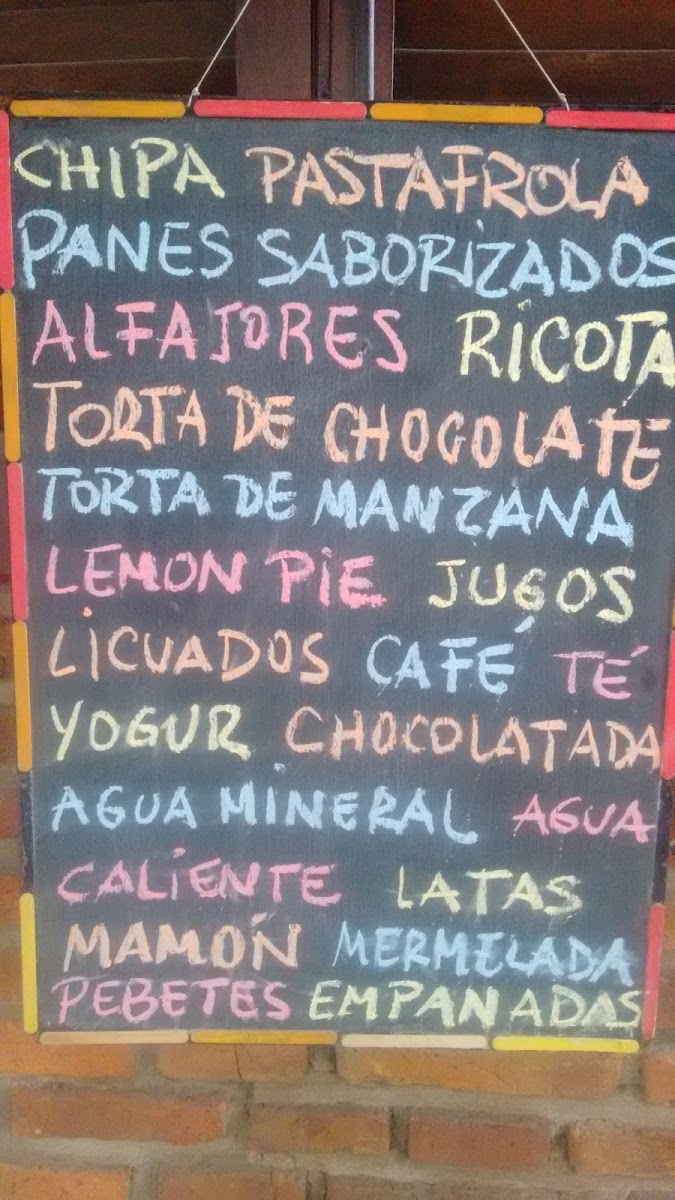 CHIPA PASTAFROLA
PANES SABORIZADOS
ALFAJORES RICOTA
TORTA DE CHOCOLATE
TORTA DE MANZANA
LEMON PIE JUGOS
LICUADOS CAFÉ TÉ
YOGUR CHOCOLATADA
AGUA MINERAL AGUA
CALIENTE LATAS
MAMÓN MERMELADA
PEBETES EMPANADAS